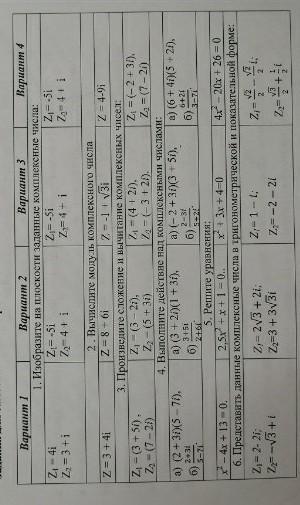 Вариант 1 Вариант 2 Вариант 3 Вариант 4
1. Изобразите на плоскости заданные комплексные числа:
Z₁= 4i Z₁= -5i Z₁= -5i Z₁= -5i
Z₂= 3 + i Z₂= 4 + i Z₂= 4 + i Z₂= 4 + i
2 . Вычислите модуль комплексного числа
Z = 3 + 4i Z = 8 + 6i Z = -1 + √3i Z = 4-9i
3. Произведите сложение и вычитание комплексных чисел:
Z₁= (3 + 5i) , Z₁= (3 − 2i), Z₁= (4 + 2i), Z₁= (−2 + 3i),
Z₂ = (7 − 2i) Z₂ = (5 + 3i) Z₂ = (−3 + 2i). Z₂ = (7 − 2i)
4. Выполните действие над комплексными числами:
а) (2 + 3i)(5 − 7i), а) (3 + 2i)(1 + 3i), а) (−2 + 3i)(3 + 5i), а) (6 + 4i)(5 + 2i),
б) (2+3i)/(5−7i) б) (3+5i)/(2+6i) б) (2−3i)/(5+2i) б) (6+2i)/(3−7i)
5. Решите уравнения:
x² − 4x + 13 = 0. 2,5x² + x + 1 = 0. x² + 3x + 4=0 4x² − 20x + 26 = 0
6. Представить данные комплексные числа в тригонометрической и показательной форме:
Z₁= 2- 2i; Z₁= 2√3 + 2i; Z₁= 1 − i; Z₁= √2/2 − √2/2 i;
Z₂= −√3 + i Z₂=3 + 3√3i Z₂= −2 − 2i Z₂= √3/2 + 1/2 i